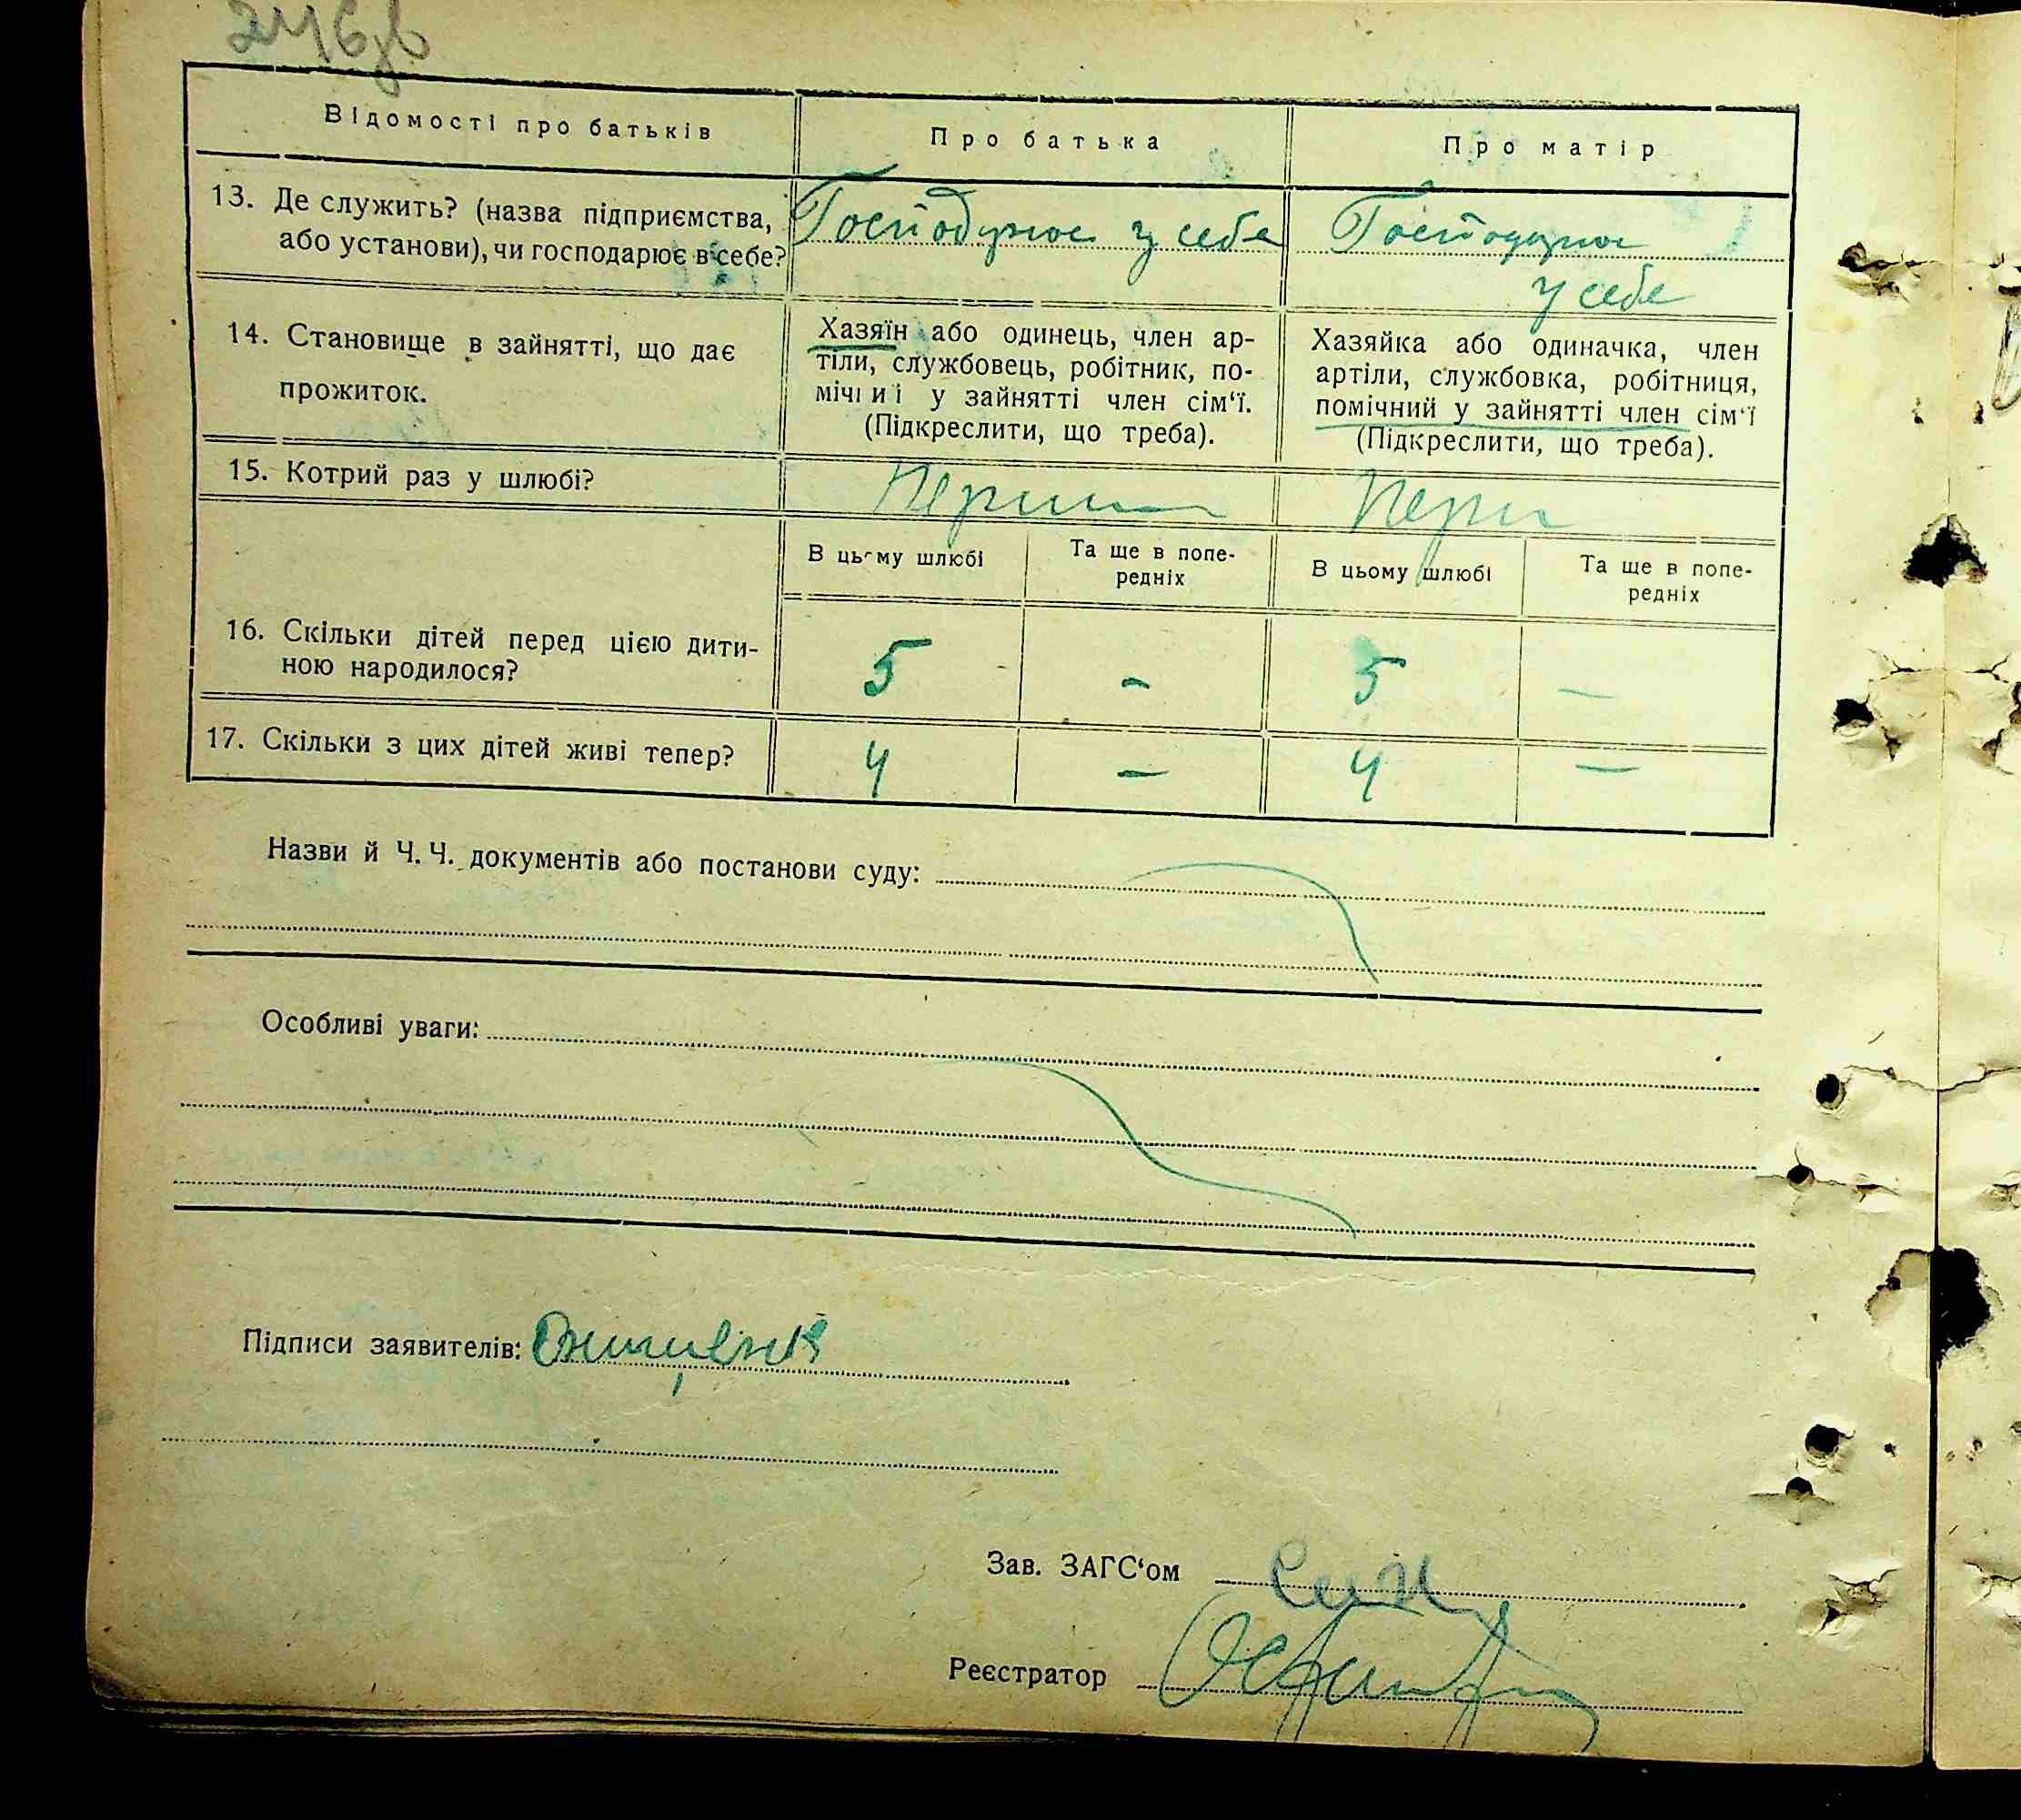 246зв
Відомості про батьків
Про батька
Про матір
13. Де служить? (назва підприємства,
або установи), чи господарює в себе?
Господарює у себе
Господарює
у себе
14. Становище в зайнятті, що дає
прожиток.
Хазяїн або одинець, член ар-
тіли, службовець, робітник, по-
мічний у зайнятті член сім‘ї.
(Підкреслити, що треба).
Хазяйка або одиначка, член
артіли, службовка, робітниця,
помічний у зайнятті член сім‘ї
(Підкреслити, що треба).
15. Котрий раз у шлюбі?
Перший
Перш
В цьому шлюбі
Та ще в попе-
редніх
В цьому шлюбі
Та ще в попе-
редніх
16. Скільки дітей перед цією дити-
ною народилося?
5 - 5 —
17. Скільки з цих дітей живі тепер?
4 — 4 —
Назви й Ч. Ч. документів або постанови суду:
Особливі уваги:
Підписи заявителів:
Зав. ЗАГС‘ом
Реєстратор